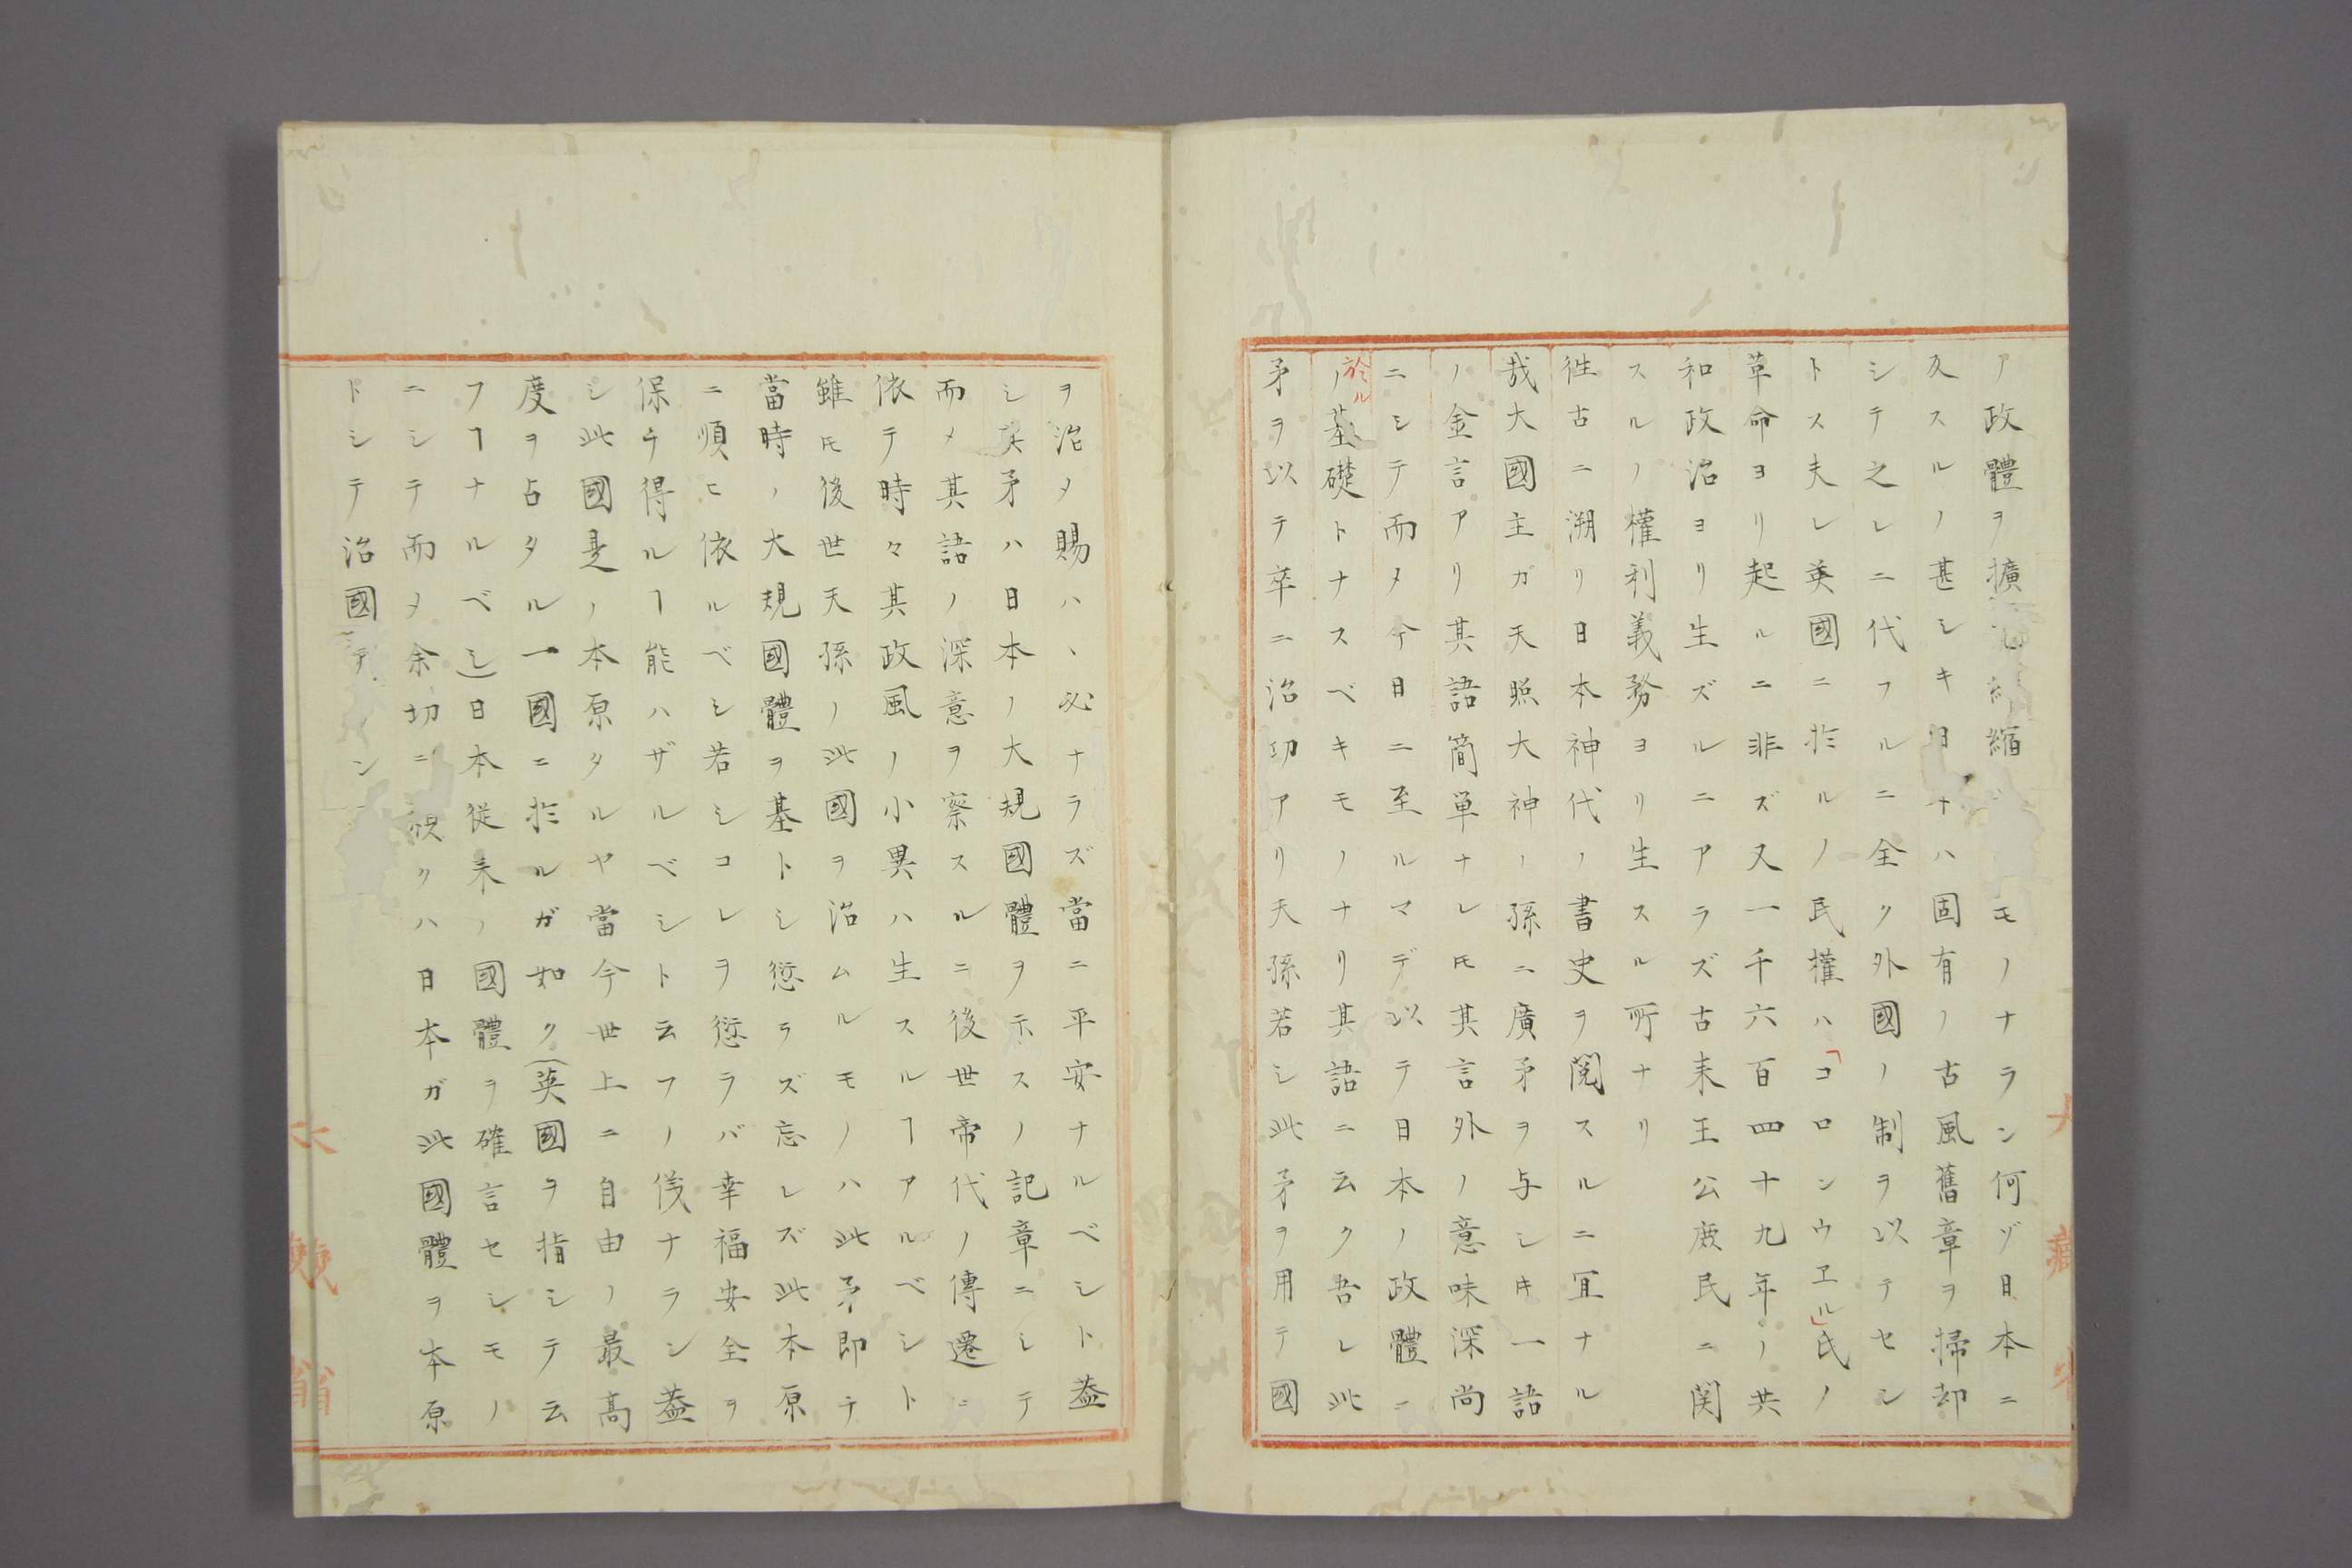 ア政體ヲ擴 縮 モノナラン何ヅ日本ニ
久スルノ甚シキ日ナハ固有ノ古風舊章ヲ掃却
シテ之レニ代フルニ全ク外國ノ制ヲ以テセン
トス夫レ英國ニ於ルノ民權ハ「コロンウヱル」氏ノ
革命ヨリ起ルニ非ズ又一千六百四十九年ノ共
和政治ヨリ生ズルニアラズ古来王公庶民ニ関
スルノ權利義務ヨリ生スル所ナリ
徃古ニ溯リ日本神代ノ書史ヲ閲スルニ冝ナル
哉大國主ガ天照大神ノ孫ニ廣矛ヲ与シキ一語
ノ金言アリ其語簡単ナレ𪜈其言外ノ意味深尚
ニシテ而メ今日ニ至ルマデ以テ日本ノ政體ニ
於ル
ノ基礎トナスベキモノナリ其語ニ云ク吾レ此
矛ヲ以テ卒ニ治功アリ天孫若シ此矛ヲ用テ國
ヲ治メ賜ハヽ必ナラズ當ニ平安ナルベシト葢
シ其矛ハ日本ノ大規國體ヲ示スノ記章ニシテ
而メ其語ノ深意ヲ察スルニ後世帝代ノ傳遷ニ
依テ時々其政風ノ小異ハ生スルヿアルベシト
雖𪜈後世天孫ノ此國ヲ治ムルモノハ此矛即チ
當時ノ大規國體ヲ基トシ愆ラズ忘レズ此本原
ニ順ヒ依ルベシ若シコレヲ愆ラバ幸福安全ヲ
保チ得ルヿ能ハザルベシト云フノ儀ナラン葢
シ此國是ノ本原タルヤ當今世上ニ自由ノ最高
度ヲ占タル一國ニ於ルガ如ク(英國ヲ指シテ云
フヿナルベシ)日本従来ノ國體ヲ確言セシモノ
ニシテ而メ余切ニ クハ日本ガ此國體ヲ本原
トシテ治國 ン